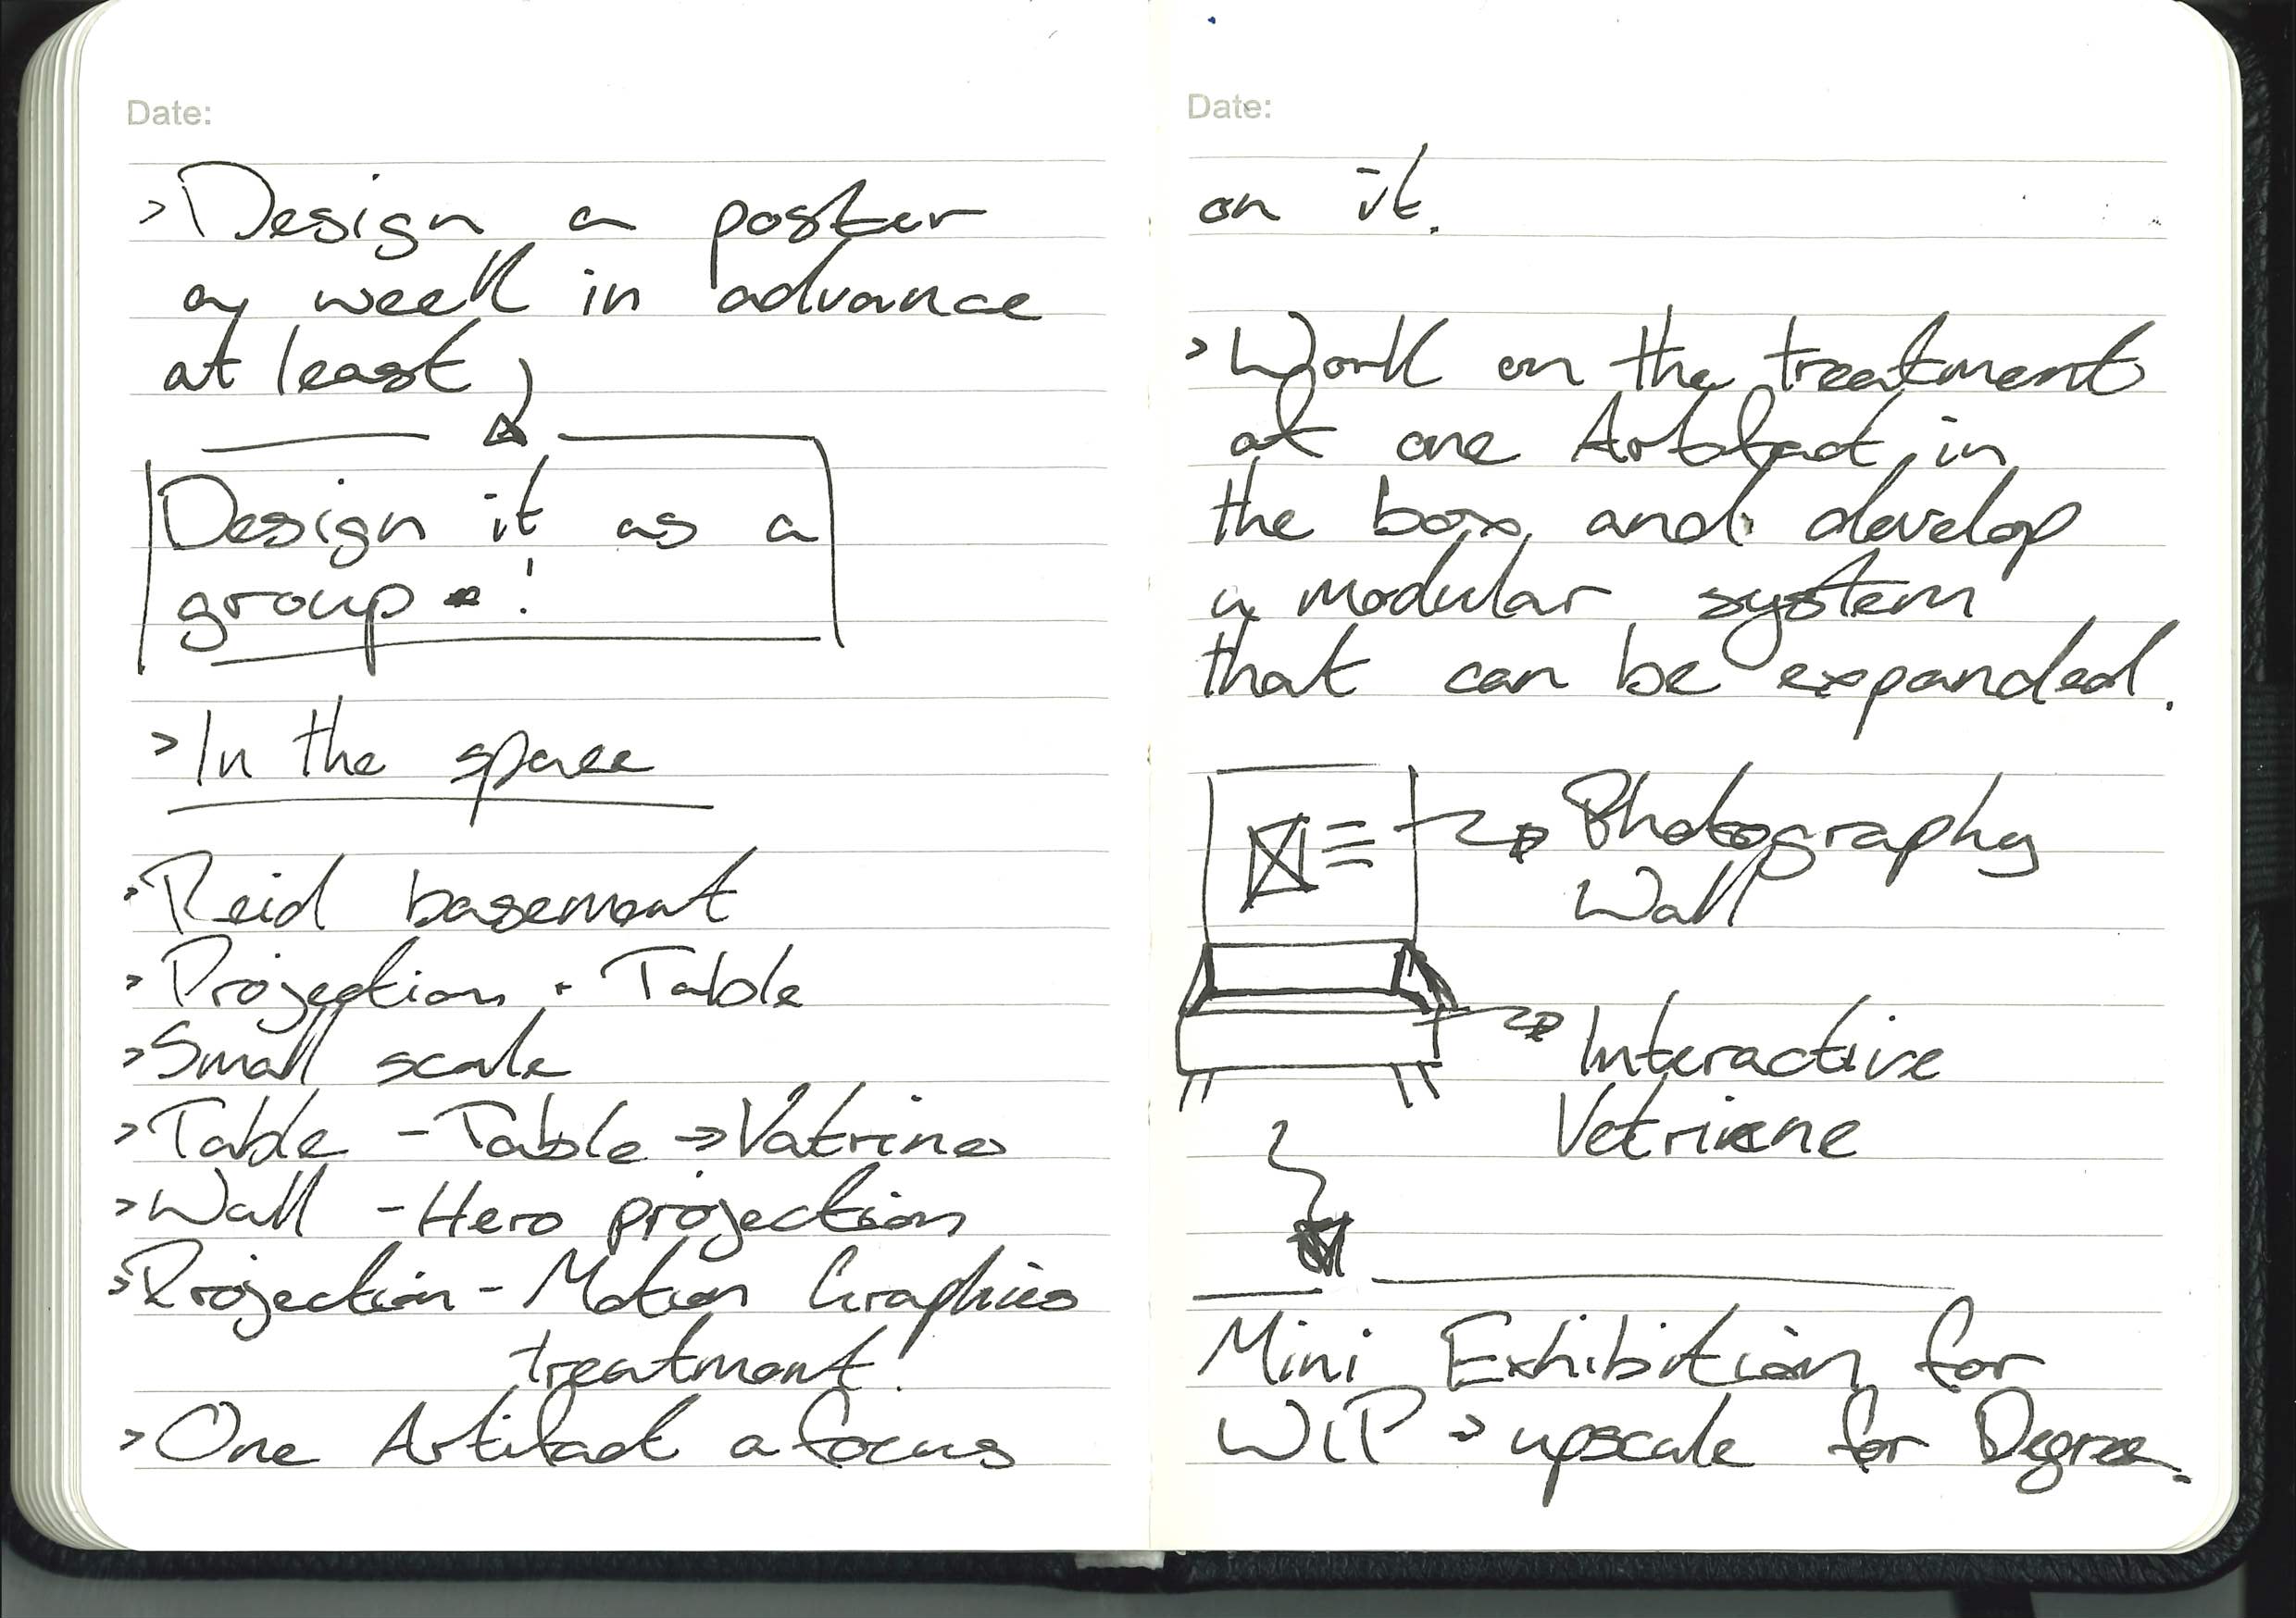 Date:
> Design a poster
a week in advance
at least
Design it as a
group !
> In the space
> Reid basement
> Projection · Table
> Small scale
> Table - Table → Vatrines
> Wall - Hero projection
> Projection - Motion Graphics
treatment!
> One Artifact a focus
Date:
on it.
> Work on the treatment
at one Artifact in
the box and develop
a modular system
that can be expanded.
Photography
Wall
Interactive
Vetriene
Mini Exhibition for
WIP → upscale for Degree.